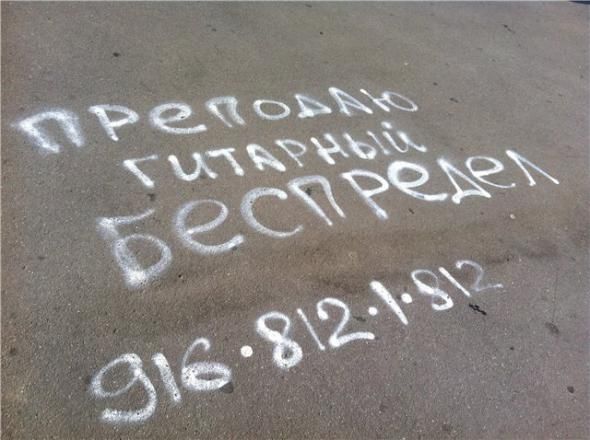 преподаю
гитарный
Беспредел
916·812·1·812